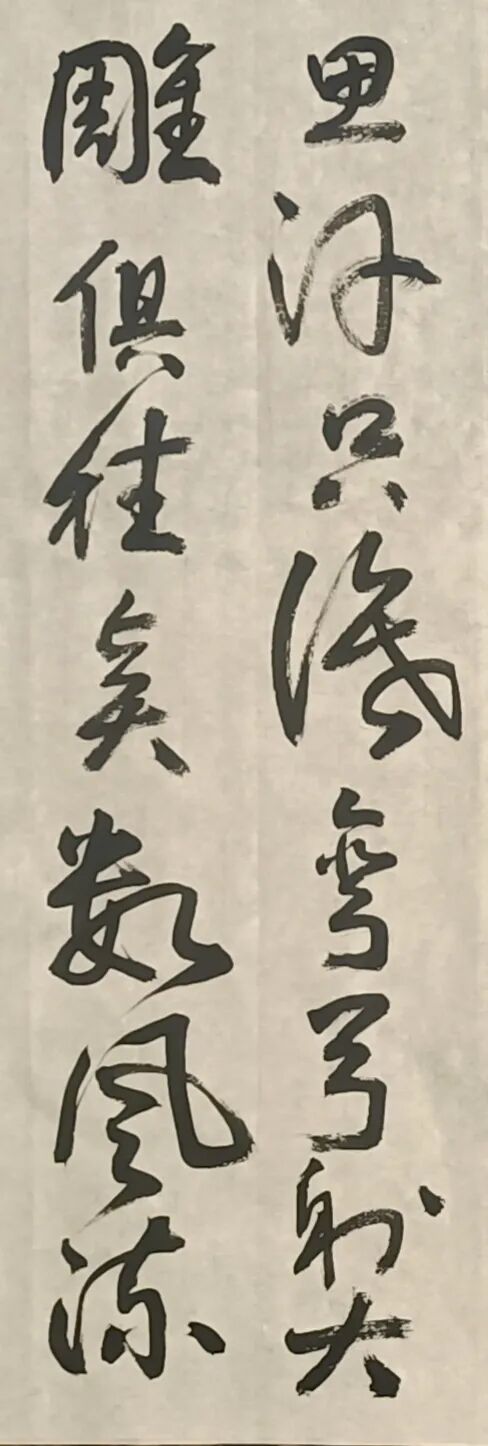 思汗只識彎弓射大
雕俱往矣數風流